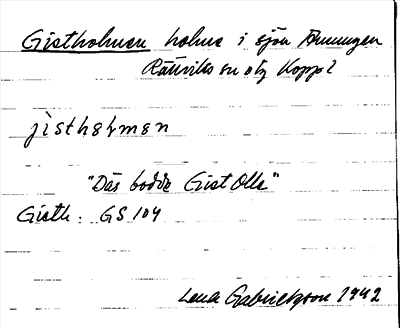 Gistholmen holme i sjön Amungen
Rättviks sn o tg Kopp l
jìsthǝɫmǝn
"Där bodde Gist Olle"
Gisth : GS 104
Lena Gabrielsson 1942